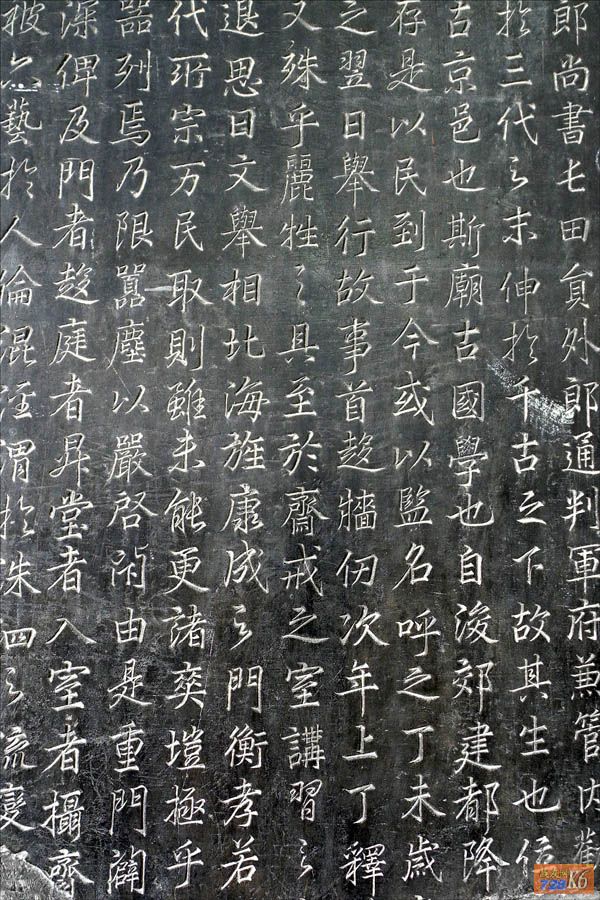 郎尚書屯田員外郎通判軍府兼管内勸
於三代之末伸於千古之下故其生也
古京邑也斯廟古國學也自浚郊建都降
存是以民到于今或以監名呼之丁未歲
之翌日舉行故事首趍牆仞次年上丁釋
又殊乎麗牲之具至於齋戒之室講習之
退思曰文舉相北海旌康成之門衡孝若
代所宗万民取則雖未能更諸爽塏極乎
器列焉乃限囂塵以嚴啓閉由是重門闢
深俾及門者趍庭者昇堂者入室者攝齊
被六藝於人倫混涇渭於洙泗之流變